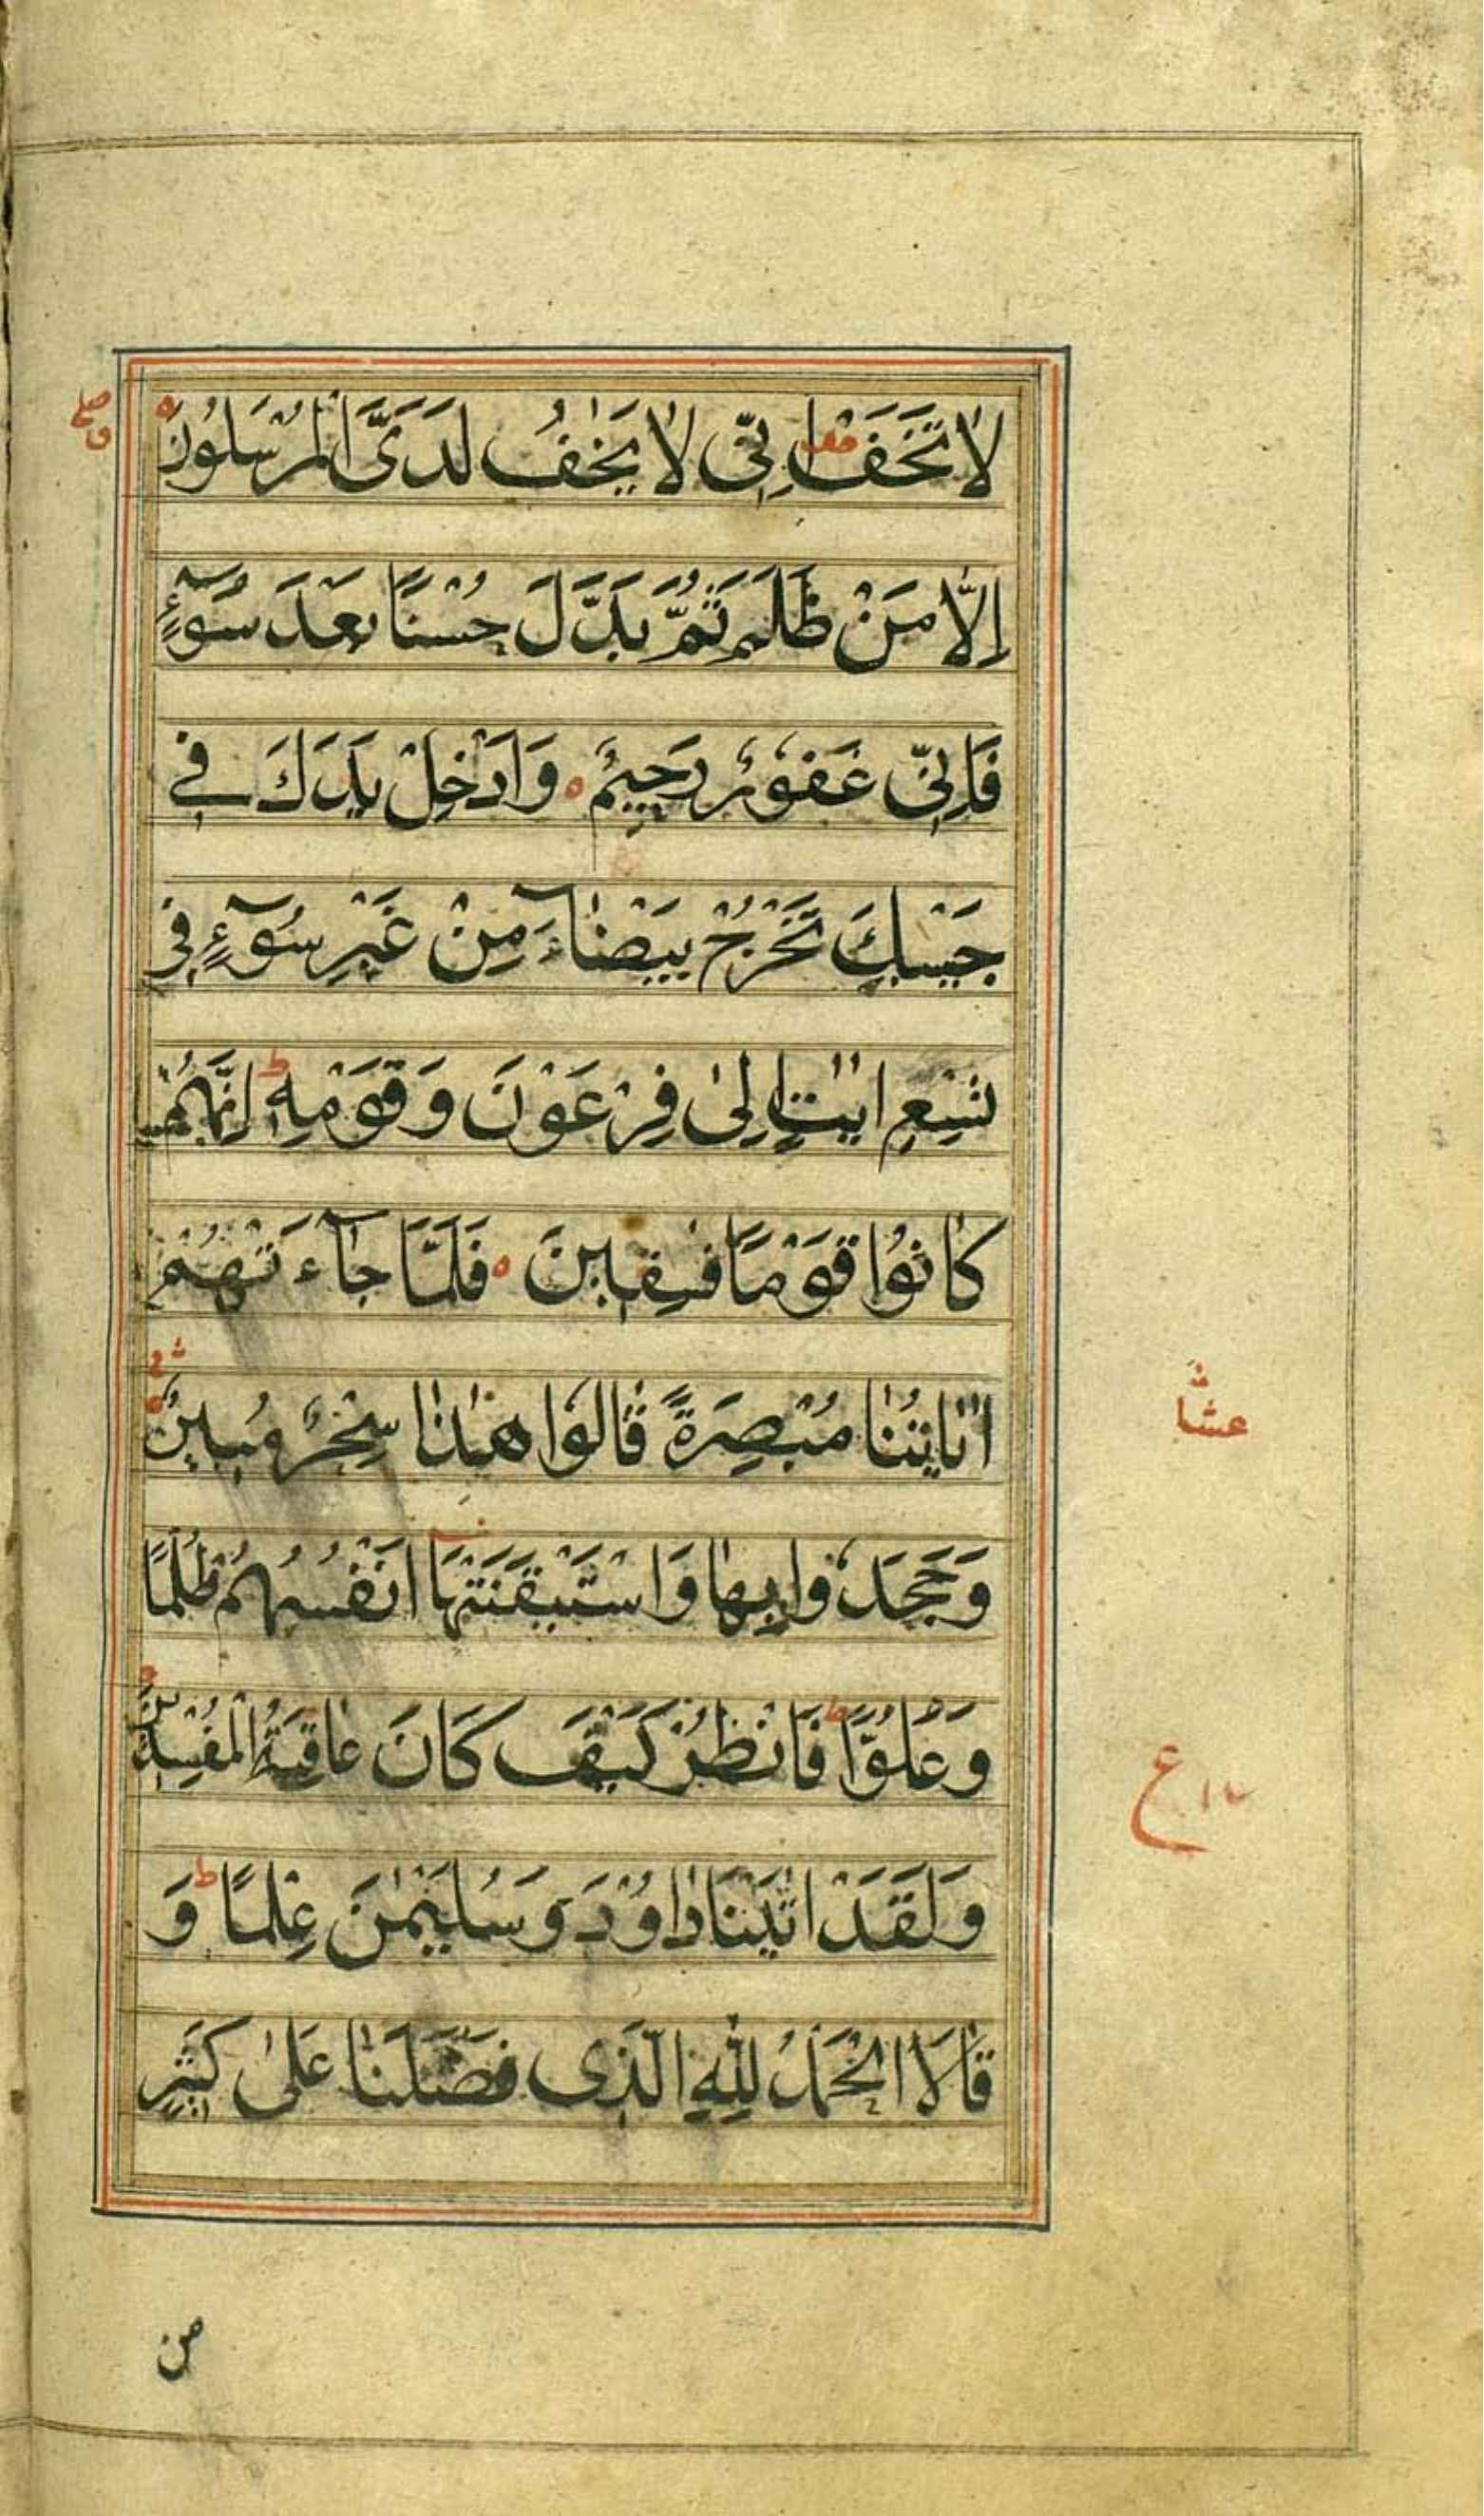 لَا تَخَفْ اِنِّى لَا يَخَافُ لَدَىَّ الْمُرْسَلُونَ
اِلَّا مَنْ ظَلَمَ ثُمَّ بَدَّلَ حُسْنًا بَعْدَ سُوٓءٍ
فَاِنِّى غَفُوْرٌ رَحِيْمٌ ه وَاَدْخِلْ يَدَكَ فِى
جَيْبِكَ تَخْرُجْ بَيْضَآءَ مِنْ غَيْرِ سُوٓءٍ فِى
تِسْعِ اٰيٰتٍ اِلٰى فِرْعَوْنَ وَقَوْمِهٖ ط اِنَّهُمْ
كَانُوْا قَوْمًا فٰسِقِيْنَ ه فَلَمَّا جَآءَتْهُمْ
اٰيَاتُنَا مُبْصِرَةً قَالُوْا هٰذَا سِحْرٌ مُبِيْنٌ
وَجَحَدُوْا بِهَا وَاسْتَيْقَنَتْهَا اَنْفُسُهُمْ ظُلْمًا
وَعُلُوًّا ط فَانْظُرْ كَيْفَ كَانَ عَاقِبَةُ الْمُفْسِدِيْنَ
وَلَقَدْ اٰتَيْنَا دَاوٗدَ وَ سُلَيْمٰنَ عِلْمًا ط وَ
قَالَا الْحَمْدُ لِلّٰهِ الَّذِى فَضَّلَنَا عَلٰى كَثِيْرٍ
ع
من